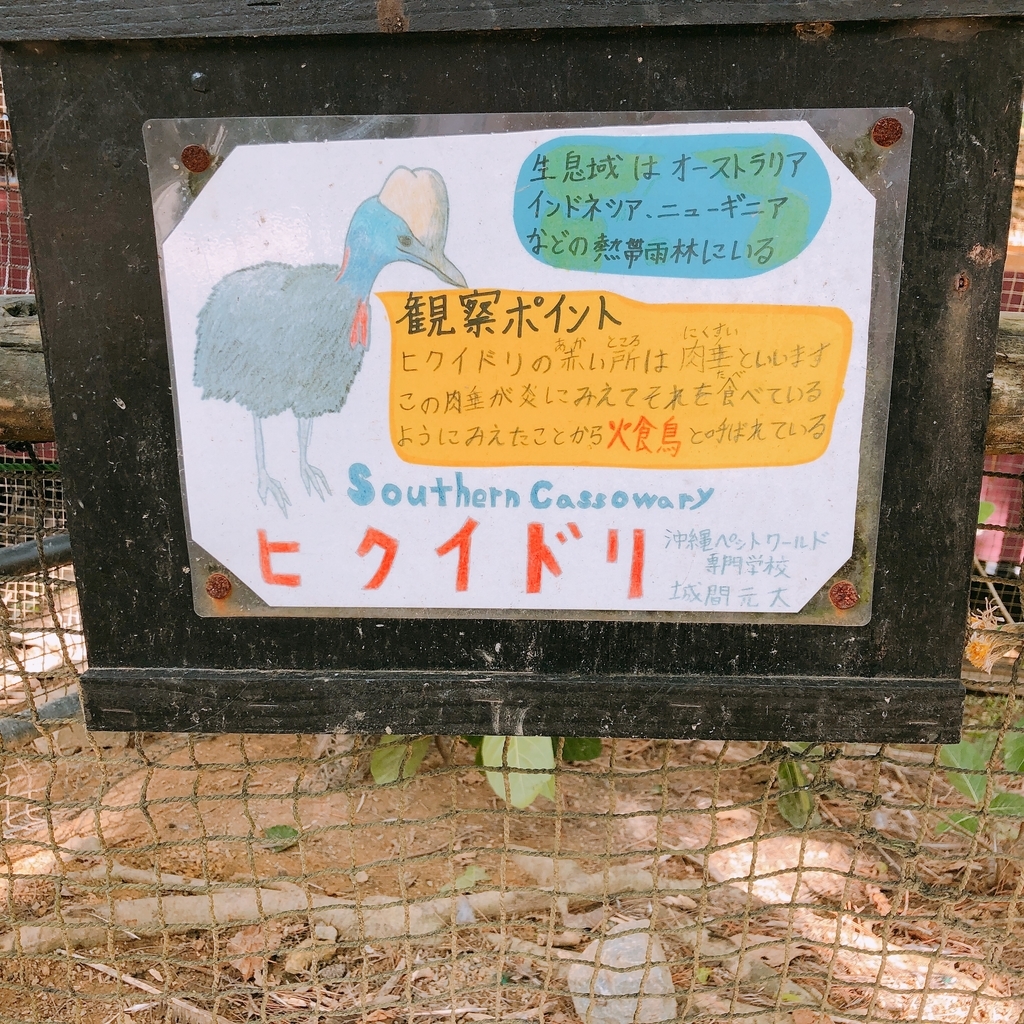 生息域はオーストラリア
インドネシア、ニューギニア
などの熱帯雨林にいる
観察ポイント
あか ところ にくすい
ヒクイドリの赤い所は肉垂といいます
たべ
この肉垂が炎にみえてそれを食べている
ようにみえたことから火食鳥と呼ばれている
Southern Cassowary
ヒクイドリ
沖縄ペットワールド
専門学校
城間元太